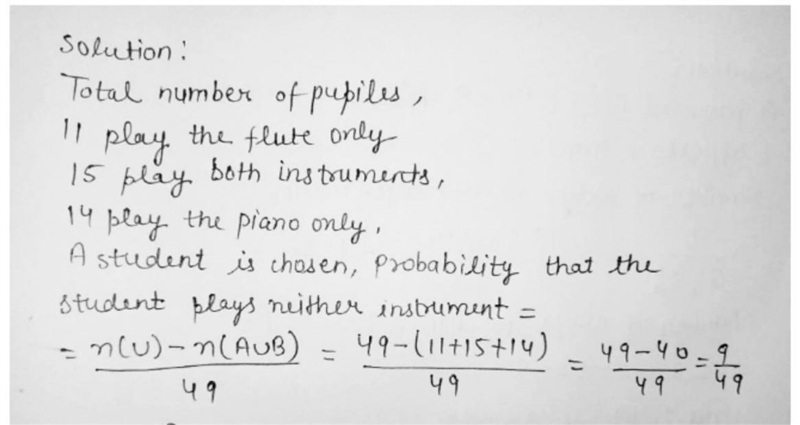 Solution:
Total number of pupiles,
11 play the flute only
15 play both instruments,
14 play the piano only.
A student is chosen, probability that the
student plays neither instrument =
= n(U) - n(A∪B) / 49 = 49-(11+15+14) / 49 = 49-40 / 49 = 9 / 49